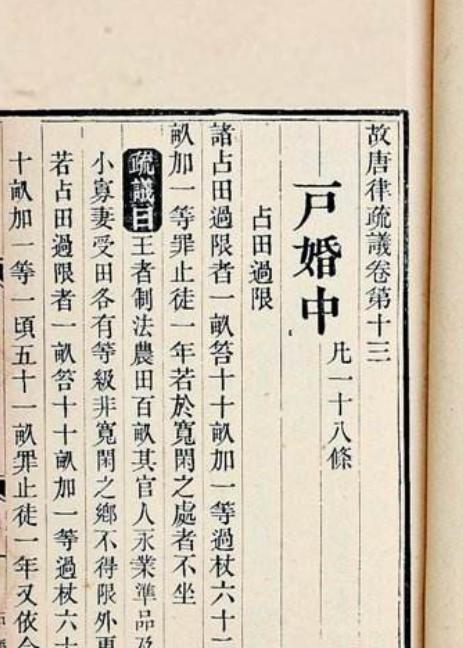 故唐律疏議卷第十三
戸婚中 凡一十八條
占田過限
諸占田過限者一畝笞十十畝加一等過杖六十二
畝加一等罪止徒一年若於寬閑之處者不坐
疏議曰王者制法農田百畝其官人永業準品及
小寡妻受田各有等級非寬閑之鄉不得限外更
若占田過限者一畝笞十十畝加一等過杖六十
十畝加一等一頃五十一畝罪止徒一年又依令